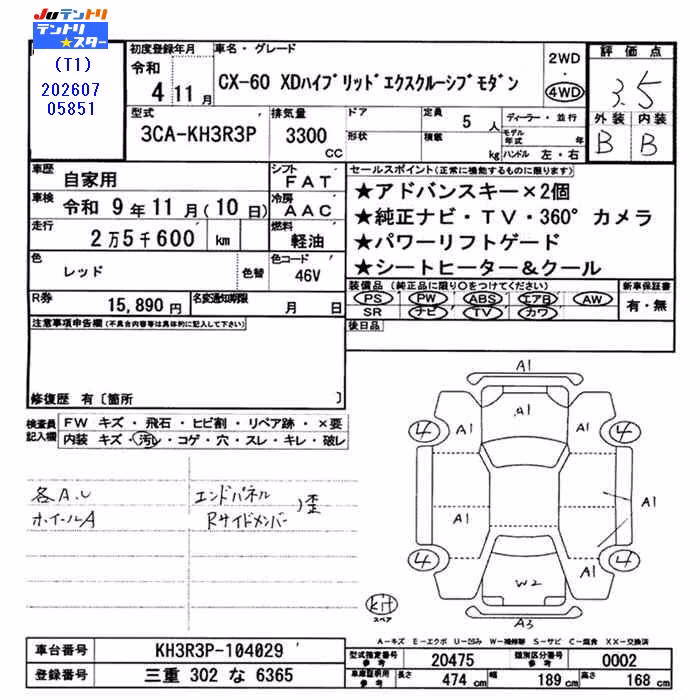 JUテントリ
テントリ
★スター
(T1)
202607
05851
初度登録年月
令和
4 11月
車名・グレード
CX-60 XDハイブリッドエクスクルーシブモダン
2WD
・
4WD
評価点
3.5
外装 内装
B B
型式
3CA-KH3R3P
排気量
3300
CC
ドア
形状
定員 5 人
積載 kg
ディーラー・並行
モデル年式 年
ハンドル 左・右
車歴 自家用
シフト FAT
車検 令和 9年11月(10日)
冷房 AAC
走行 2万5千600 km
燃料 軽油
色 レッド
色替
色コード 46V
R券 15,890円
名変通知期限 月 日
セールスポイント(正常に機能するものに限ります)
★アドバンスキー×2個
★純正ナビ・TV・360°カメラ
★パワーリフトゲード
★シートヒーター&クール
装備品(純正品に限り○をつけてください)
PS PW ABS エアB AW
SR ナビ TV カワ
新車保証書
有・無
後日品
注意事項申告欄(不具合内容等は具体的に記入して下さい)
修復歴 有〔箇所 〕
検査員
記入欄
FW キズ・飛石・ヒビ割・リペア跡・×要
内装 キズ・汚レ・コゲ・穴・スレ・キレ・破レ
各A.U
ホイールA
エンドパネル
Rサイドメンバー
)歪
A1
A1
4 A1 A1 4
A1 A1
4 A1 4
W2
A3
kit
スペア
A-キズ E-エクボ U-凹み W-補修跡 S-サビ C-腐食 XX-交換済
車台番号 KH3R3P-104029
登録番号 三重 302 な 6365
型式指定番号
参考
20475
類別区分番号
参考
0002
車庫証明用
参考
長さ 474 cm
幅 189 cm
高さ 168 cm